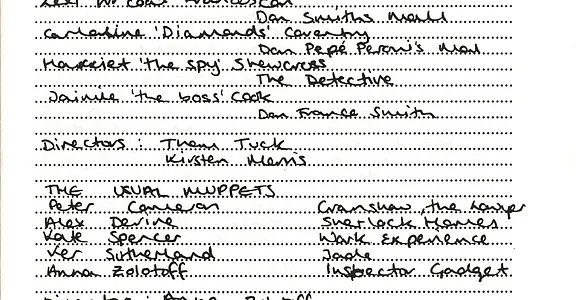 Dan Smith's Moll
Catherine 'Diamonds' Coventry
Dan Pepé Peroni's Moll
Harriet 'the spy' Shawcross
The Detective
Jaimie 'the boss' Cook
Dan France Smith
Directors : Thom Tuck
Kirsten
THE USUAL MUPPETS
Peter Cameron Cranshaw, the Lawyer
Alex Devine Sherlock Homes
Kate Spencer Work Experience
Ker Sutherland Jade
Anna Zolotoff Inspector Gadget